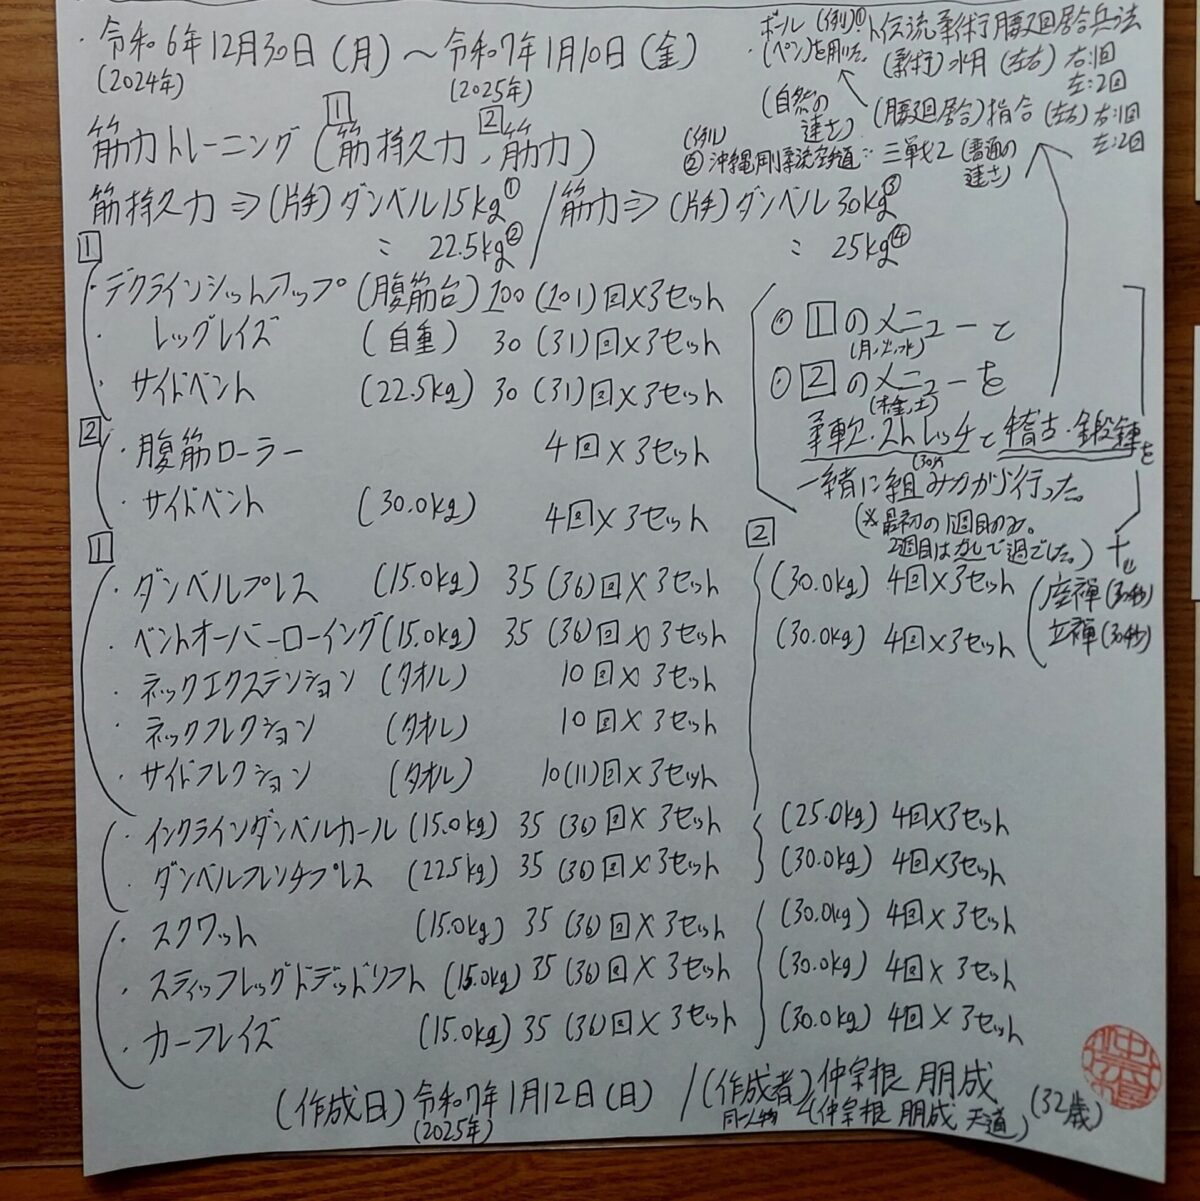 ・令和6年12月30日(月)～令和7年1月10日(金)
(2024年) (2025年)
ボール (例)① ト伝流柔術腰廻居合兵法
(ペン)を用いた。
(柔術)水月(左右)右:1回
左:2回
(自然の速さ)
(腰廻居合)指合(左右)右:1回
左:2回
(例)
② 沖縄剛柔流空手道:三戦2(普通の速さ)
1 2
筋力トレーニング(筋持久力、筋力)
筋持久力⇒(片手)ダンベル15kg① / 筋力⇒(片手)ダンベル30kg③
: 22.5kg② / : 25kg④
1
・デクラインシットアップ(腹筋台)100(101)回×3セット
・レッグレイズ(自重)30(31)回×3セット
・サイドベント(22.5kg)30(31)回×3セット
2
・腹筋ローラー 4回×3セット
・サイドベント(30.0kg)4回×3セット
◎1のメニューと
(月、火、水)
・2のメニューを
(木、金、土)
柔軟・ストレッチと稽古・鍛錬を
(30分)
一緒に組みながら行った。
(※最初の1週目のみ。
2週目はなしで過ごした。)
+
(座禅(30秒)
立禅(30秒)
1 2
・ダンベルプレス(15.0kg)35(36)回×3セット (30.0kg)4回×3セット
・ベントオーバーローイング(15.0kg)35(36)回×3セット (30.0kg)4回×3セット
・ネックエクステンション(タオル)10回×3セット
・ネックフレクション(タオル)10回×3セット
・サイドフレクション(タオル)10(11)回×3セット
・インクラインダンベルカール(15.0kg)35(36)回×3セット (25.0kg)4回×3セット
・ダンベルフレンチプレス(22.5kg)35(36)回×3セット (30.0kg)4回×3セット
・スクワット(15.0kg)35(36)回×3セット (30.0kg)4回×3セット
・スティッフレッグドデッドリフト(15.0kg)35(36)回×3セット (30.0kg)4回×3セット
・カーフレイズ(15.0kg)35(36)回×3セット (30.0kg)4回×3セット
(作成日)令和7年1月12日(日) / (作成者)仲宗根 朋成
(2025年) 同一人物 (仲宗根 朋成 天道)(32歳)
仲宗根